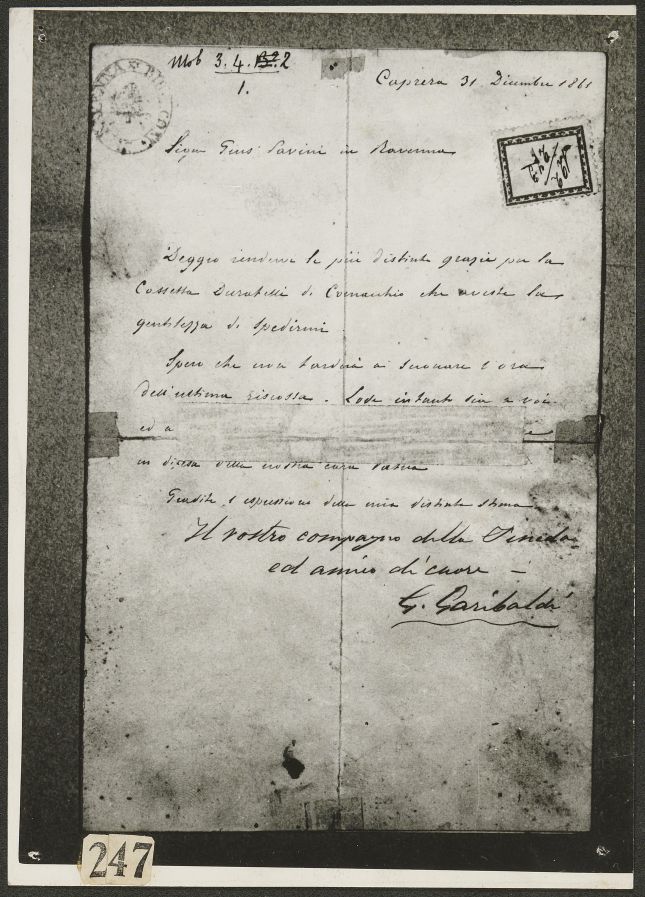 Mob 3.4. 2
1.
Caprera 31 Dicembre 1861
RAVENNA
Sigr Gius: Savini in Ravenna
Deggio rendervi le più distinte grazie per la
Cassetta di Comacchio che aveste la
gentilezza di spedirmi.
Spero che non tarderà a suonare l'ora
dell'ultima riscossa. Lode intanto sia a voi
ed a
in difesa della nostra cara Patria
Gradite l'espressione della mia distinta stima
Il vostro compagno della Pineta
ed amico di cuore
G. Garibaldi
247